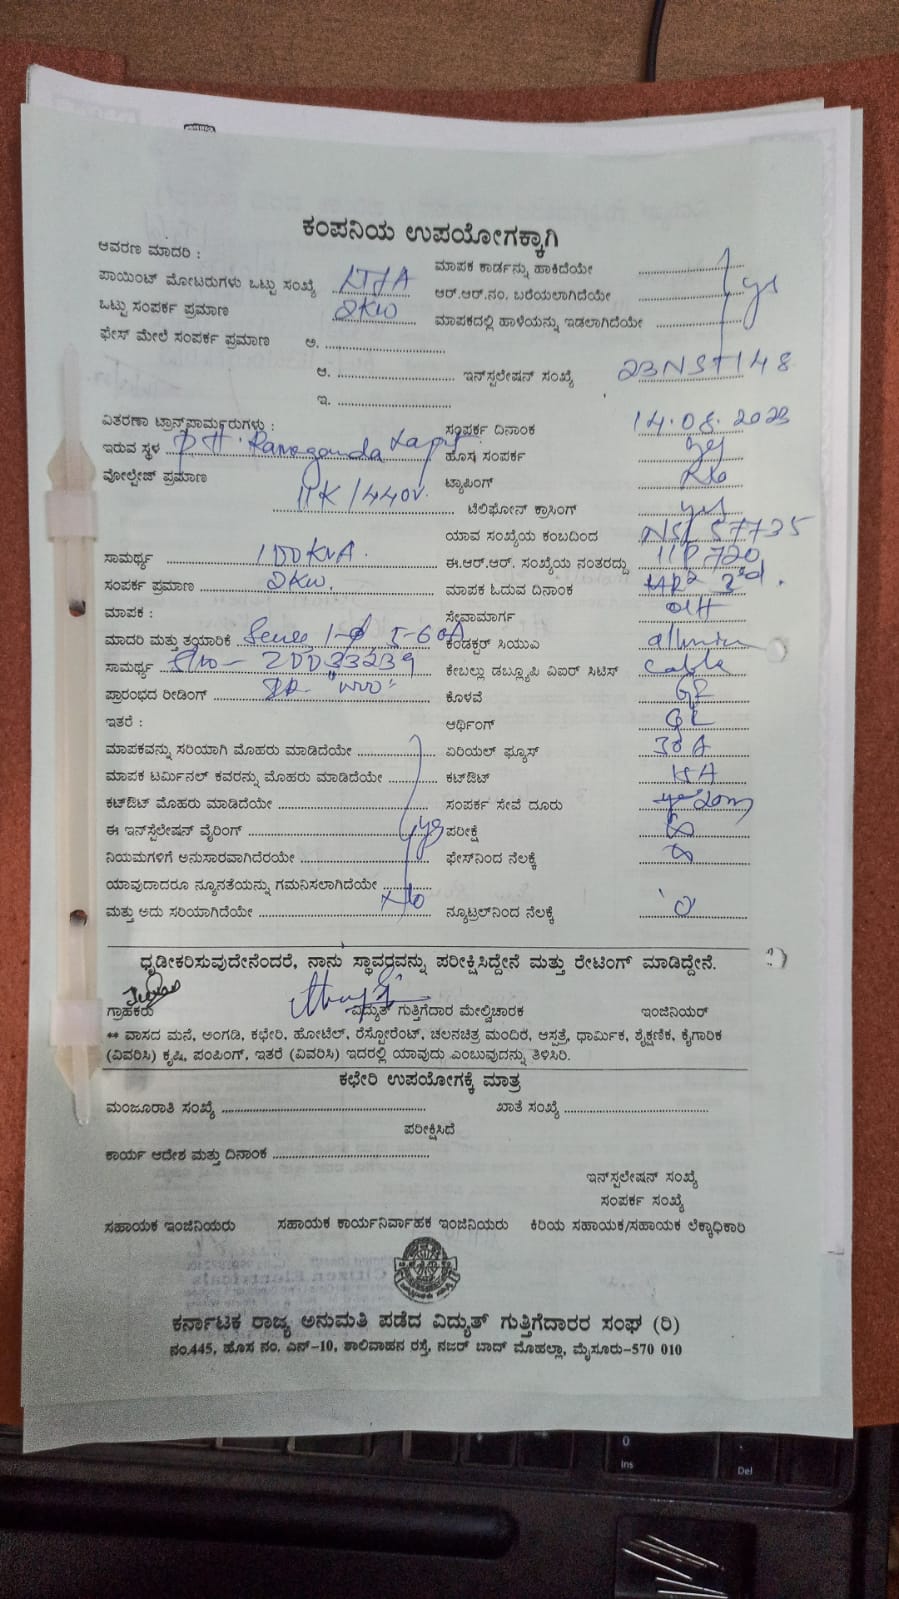 ಕಂಪನಿಯ ಉಪಯೋಗಕ್ಕಾಗಿ
ಆವರಣ ಮಾದರಿ :
ಪಾಯಿಂಟ್ ಮೋಟರುಗಳು ಒಟ್ಟು ಸಂಖ್ಯೆ
ಒಟ್ಟು ಸಂಪರ್ಕ ಪ್ರಮಾಣ 2KW
ಫೇಸ್ ಮೇಲೆ ಸಂಪರ್ಕ ಪ್ರಮಾಣ ಅ.
ಆ.
ಇ.
ಮಾಪಕ ಕಾರ್ಡನ್ನು ಹಾಕಿದೆಯೇ
ಆರ್.ಆರ್.ನಂ. ಬರೆಯಲಾಗಿದೆಯೇ yes
ಮಾಪಕದಲ್ಲಿ ಹಾಳೆಯನ್ನು ಇಡಲಾಗಿದೆಯೇ
ಇನ್‌ಸ್ಟಲೇಷನ್ ಸಂಖ್ಯೆ 23NST148
ವಿತರಣಾ ಟ್ರಾನ್ಸ್‌ಫಾರ್ಮರುಗಳು :
ಇರುವ ಸ್ಥಳ
ವೋಲ್ಟೇಜ್ ಪ್ರಮಾಣ
11K/440V.
ಸಾಮರ್ಥ್ಯ 100KVA.
ಸಂಪರ್ಕ ಪ್ರಮಾಣ 2KW.
ಮಾಪಕ :
ಮಾದರಿ ಮತ್ತು ತಯಾರಿಕೆ 1-ϕ 5-60A
ಸಾಮರ್ಥ್ಯ
ಪ್ರಾರಂಭದ ರೀಡಿಂಗ್
ಇತರೆ :
ಮಾಪಕವನ್ನು ಸರಿಯಾಗಿ ಮೊಹರು ಮಾಡಿದೆಯೇ
ಮಾಪಕ ಟರ್ಮಿನಲ್ ಕವರನ್ನು ಮೊಹರು ಮಾಡಿದೆಯೇ
ಕಟ್‌ಔಟ್ ಮೊಹರು ಮಾಡಿದೆಯೇ
ಈ ಇನ್‌ಸ್ಟೆಲೇಷನ್ ವೈರಿಂಗ್ yes
ನಿಯಮಗಳಿಗೆ ಅನುಸಾರವಾಗಿದೆರಯೇ
ಯಾವುದಾದರೂ ನ್ಯೂನತೆಯನ್ನು ಗಮನಿಸಲಾಗಿದೆಯೇ
ಮತ್ತು ಅದು ಸರಿಯಾಗಿದೆಯೇ No
ಸಂಪರ್ಕ ದಿನಾಂಕ 14.08.2023
ಹೊಸ ಸಂಪರ್ಕ yes
ಟ್ಯಾಪಿಂಗ್ No
ಟೆಲಿಫೋನ್ ಕ್ರಾಸಿಂಗ್ yes
ಯಾವ ಸಂಖ್ಯೆಯ ಕಂಬದಿಂದ NSL57735
ಈ.ಆರ್.ಆರ್. ಸಂಖ್ಯೆಯ ನಂತರದ್ದು 11P720
ಮಾಪಕ ಓದುವ ದಿನಾಂಕ
ಸೇವಾಮಾರ್ಗ OH
ಕಂಡಕ್ಟರ್ ಸಿಯುಎ
ಕೇಬಲ್ಲು ಡಬ್ಲ್ಯೂಪಿ ವಿಐರ್ ಸಿಟಿಸ್ cable
ಕೊಳವೆ
ಆರ್ಥಿಂಗ್
ಏರಿಯಲ್ ಫ್ಯೂಸ್ 30A
ಕಟ್‌ಔಟ್ 15A
ಸಂಪರ್ಕ ಸೇವೆ ದೂರು 20m
ಪರೀಕ್ಷೆ
ಫೇಸ್‌ನಿಂದ ನೆಲಕ್ಕೆ
ನ್ಯೂಟ್ರಲ್‌ನಿಂದ ನೆಲಕ್ಕೆ 'o'
ಧೃಡೀಕರಿಸುವುದೇನೆಂದರೆ, ನಾನು ಸ್ಥಾವರವನ್ನು ಪರೀಕ್ಷಿಸಿದ್ದೇನೆ ಮತ್ತು ರೇಟಿಂಗ್ ಮಾಡಿದ್ದೇನೆ.
ಗ್ರಾಹಕರು ವಿದ್ಯುತ್ ಗುತ್ತಿಗೆದಾರ ಮೇಲ್ವಿಚಾರಕ ಇಂಜಿನಿಯರ್
** ವಾಸದ ಮನೆ, ಅಂಗಡಿ, ಕಛೇರಿ, ಹೋಟೆಲ್, ರೆಸ್ಟೋರೆಂಟ್, ಚಲನಚಿತ್ರ ಮಂದಿರ, ಆಸ್ಪತ್ರೆ, ಧಾರ್ಮಿಕ, ಶೈಕ್ಷಣಿಕ, ಕೈಗಾರಿಕ
(ವಿವರಿಸಿ) ಕೃಷಿ, ಪಂಪಿಂಗ್, ಇತರೆ (ವಿವರಿಸಿ) ಇದರಲ್ಲಿ ಯಾವುದು ಎಂಬುವುದನ್ನು ತಿಳಿಸಿರಿ.
ಕಛೇರಿ ಉಪಯೋಗಕ್ಕೆ ಮಾತ್ರ
ಮಂಜೂರಾತಿ ಸಂಖ್ಯೆ ಖಾತೆ ಸಂಖ್ಯೆ
ಪರೀಕ್ಷಿಸಿದೆ
ಕಾರ್ಯ ಆದೇಶ ಮತ್ತು ದಿನಾಂಕ
ಇನ್‌ಸ್ಟಲೇಷನ್ ಸಂಖ್ಯೆ
ಸಂಪರ್ಕ ಸಂಖ್ಯೆ
ಸಹಾಯಕ ಇಂಜಿನಿಯರು ಸಹಾಯಕ ಕಾರ್ಯನಿರ್ವಾಹಕ ಇಂಜಿನಿಯರು ಕಿರಿಯ ಸಹಾಯಕ/ಸಹಾಯಕ ಲೆಕ್ಕಾಧಿಕಾರಿ
ಕರ್ನಾಟಕ ರಾಜ್ಯ ಅನುಮತಿ ಪಡೆದ ವಿದ್ಯುತ್ ಗುತ್ತಿಗೆದಾರರ ಸಂಘ (ರಿ)
ನಂ.445, ಹೊಸ ನಂ. ಎನ್-10, ಶಾಲಿವಾಹನ ರಸ್ತೆ, ನಜರ್ ಬಾದ್ ಮೊಹಲ್ಲಾ, ಮೈಸೂರು-570 010
0
Ins
Del